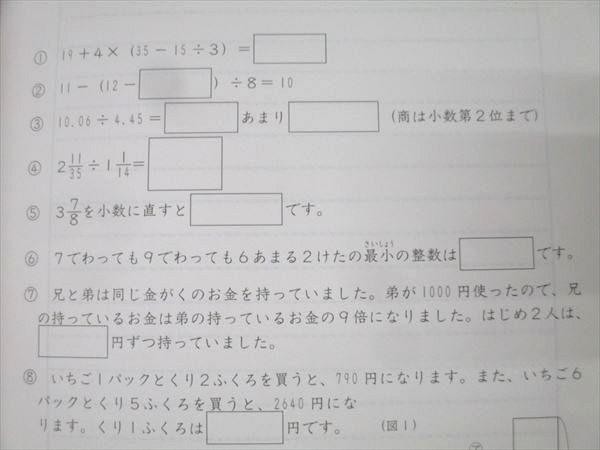 ① 19+4×(35-15÷3)=
② 11-(12- )÷8=10
③ 10.06÷4.45= あまり (商は小数第2位まで)
④ 2 11/35÷1 1/14=
⑤ 3 7/8を小数に直すと です。
⑥ 7でわっても9でわっても6あまる2けたの最小の整数は です。
さいしょう
⑦ 兄と弟は同じ金がくのお金を持っていました。弟が1000円使ったので、兄
の持っているお金は弟の持っているお金の9倍になりました。はじめ2人は、
円ずつ持っていました。
⑧ いちご1パックとくり2ふくろを買うと、790円になります。また、いちご6
パックとくり5ふくろを買うと、2640円にな
ります。くり1ふくろは 円です。 (図1)